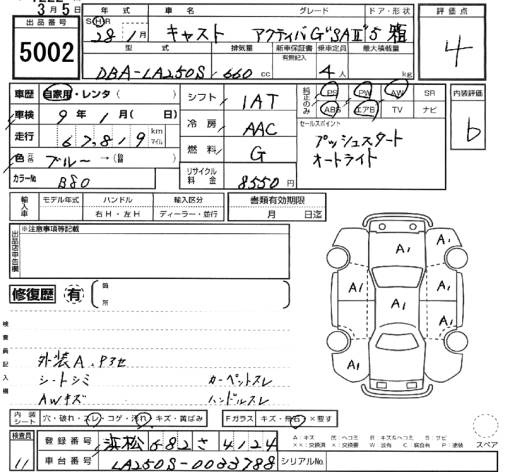 3月5日
出品番号 年式 車名 グレード ドア・形状 評価点
5002
SHR 28年1月 キャスト アクティバG"SAⅡ" 5 箱
4
型式 排気量 新車保証書 有無記入 乗車定員 最大積載量
DBA-LA250S 660 cc 4人 kg
車歴 自家用・レンタ( )
車検 9年1月( 日)
走行 67,819 km マイル
色 ブルー →( )
カラーNo B80
シフト IAT
冷房 AAC
燃料 G
リサイクル料金 8550円
純正のみ PS PW AW SR
ABS エアB TV ナビ
セールスポイント
プッシュスタート
オートライト
内装評価
b
輸入車 モデル年式 ハンドル 輸入区分 書類有効期限
右H・左H ディーラー・並行 月 日迄
出品店申告欄 ※注意事項等記載
修復歴 有 箇所
検査員記入欄
外装A,タワセ
シートシミ カーペットスレ
AWキズ ハンドルスレ
A1
A1
A1
A1
A1
A1
内装シート 穴・破れ・スレ・コゲ・汚れ・キズ・黄ばみ Fガラス キズ・飛石・×要す
検査員 11
登録番号 浜松 682 さ 4124
車台番号 LA250S-0033788 シリアルNo.
スペア